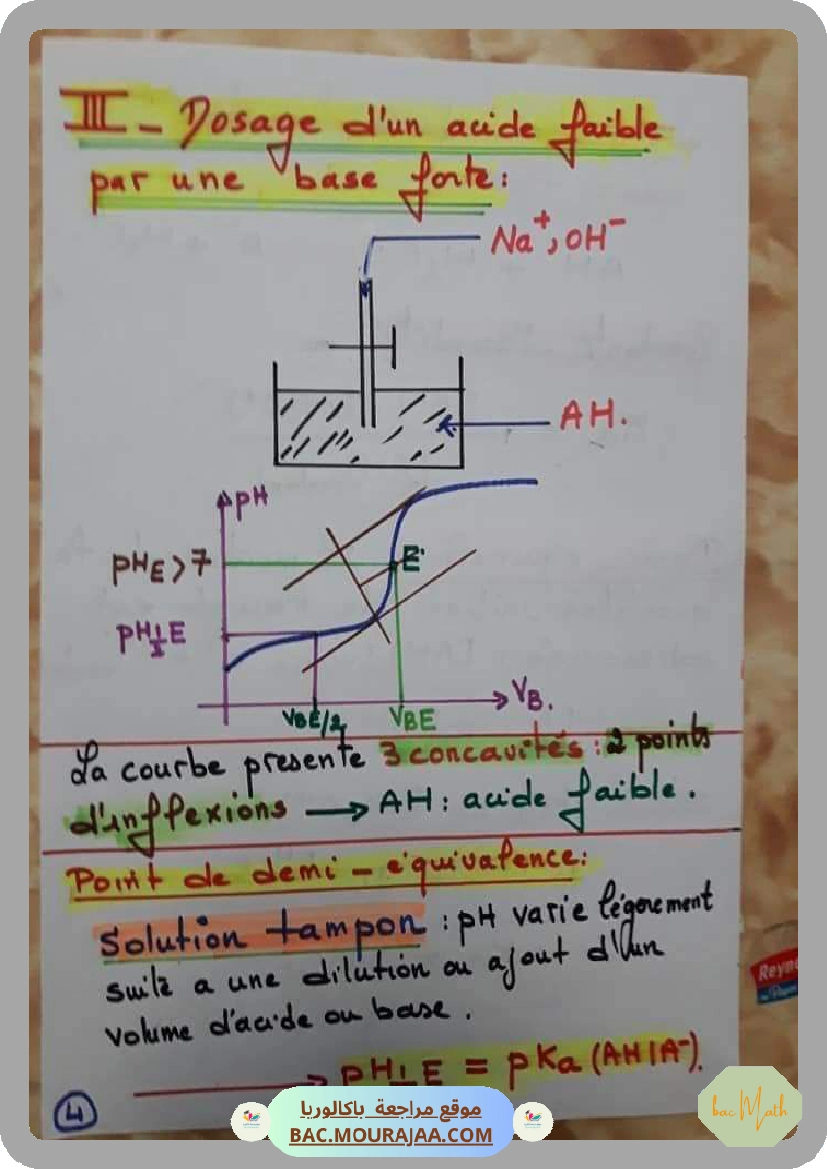 III - Dosage d'un acide faible
par une base forte :
Na⁺, OH⁻
AH.
pH
pHE > 7
E
pH½E
VB.
VBE/2
VBE
La courbe presente 3 concavités : 2 points
d'inflexions → AH : acide faible.
Point de demi - équivalence :
Solution tampon : pH varie légerement
suite a une dilution ou ajout d'un
volume d'acide ou base.
→ pH½E = pKa (AH/A⁻).
4
Reyn
bac Math
موقع مراجعة باكالوريا
BAC.MOURAJAA.COM